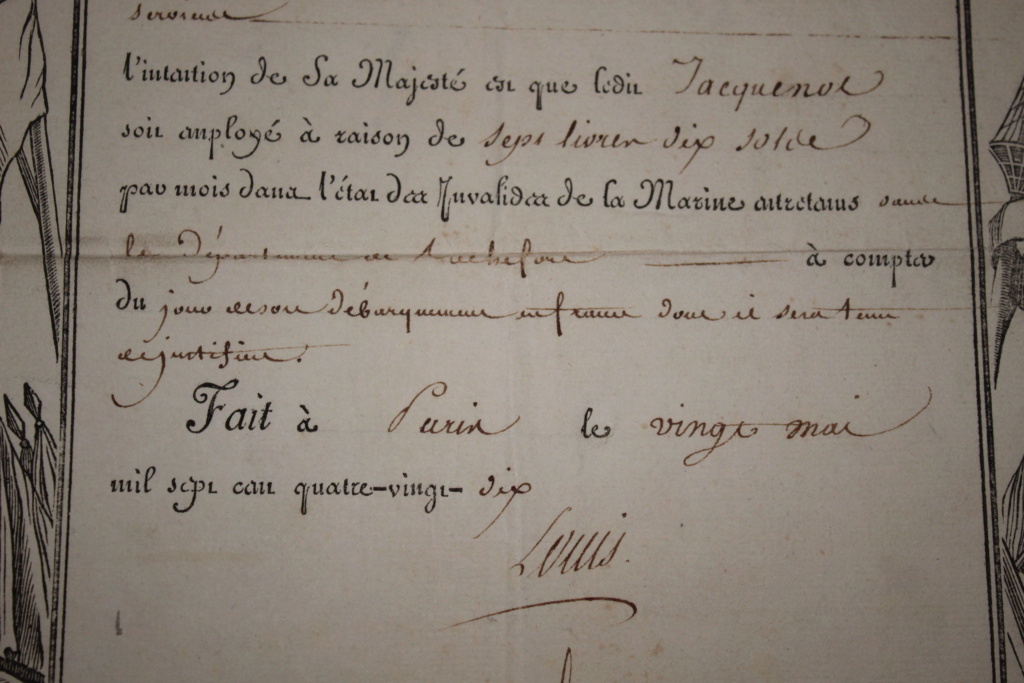 service
l'intention de Sa Majesté est que ledit Jacquenot
soit employé à raison de sept livres dix solde
par mois dans l'état des Invalides de la Marine entretenus dans
le Département de Rochefort à compter
du jour de son débarquement en france dont il sera tenu
de justifier.
Fait à Paris le vingt mai
mil sept cent quatre-vingt-dix
Louis